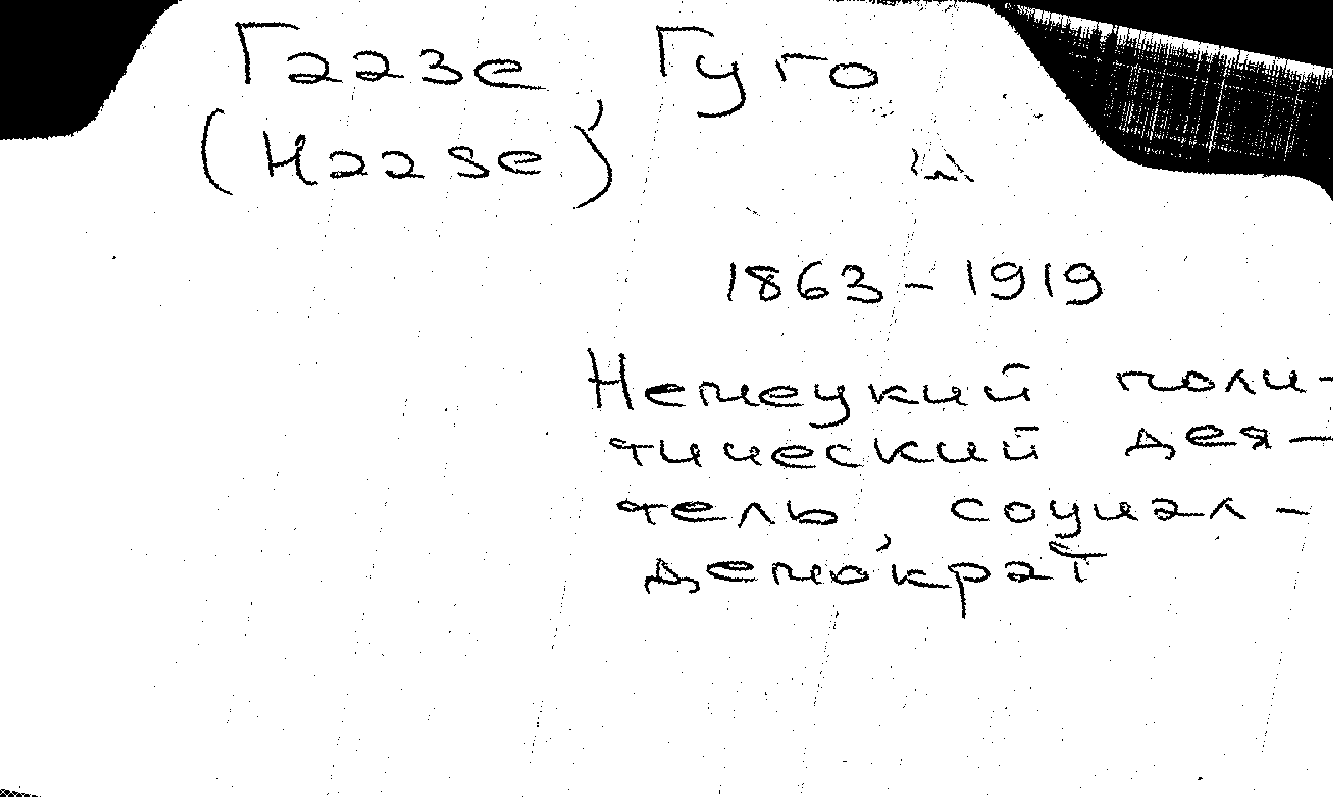 Гаазе, Гуго
(Haase)
1863-1919
Немецкий поли-
тический дея-
тель, социал-
демократ